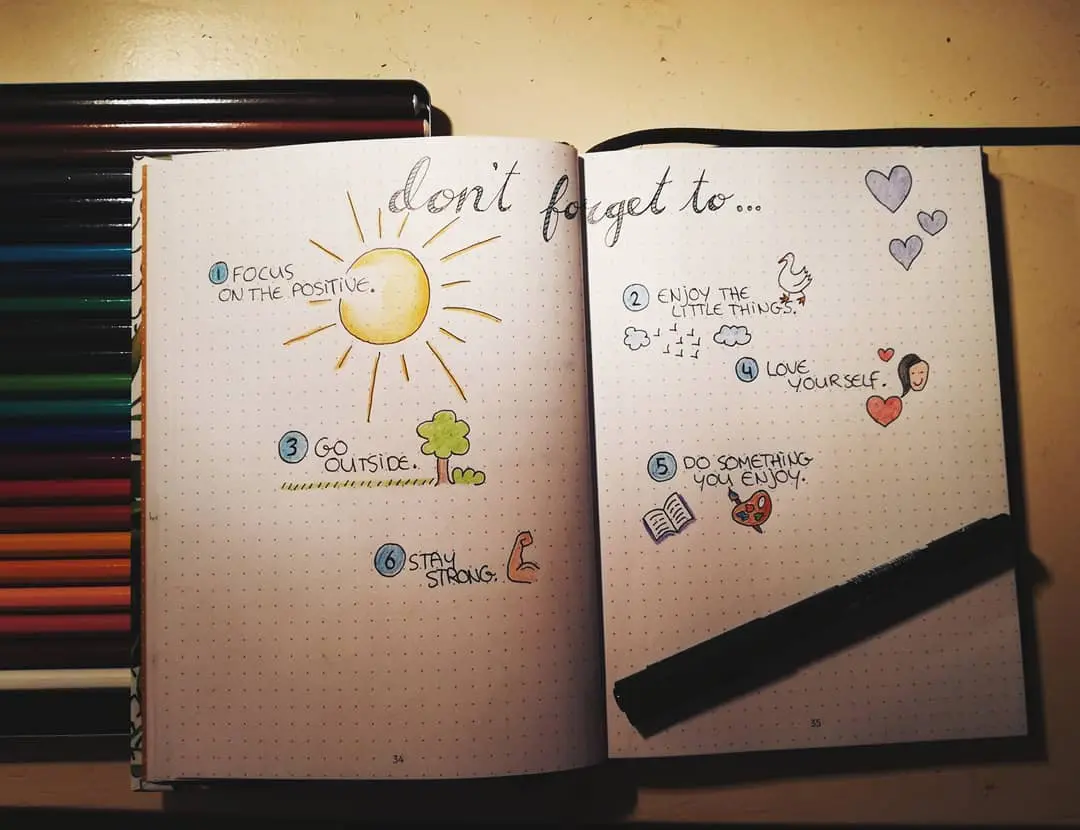 don't forget to...
1 FOCUS
ON THE POSITIVE.
2 ENJOY THE
LITTLE THINGS.
3 GO
OUTSIDE.
4 LOVE
YOURSELF.
5 DO SOMETHING
YOU ENJOY.
6 STAY
STRONG.
34
35